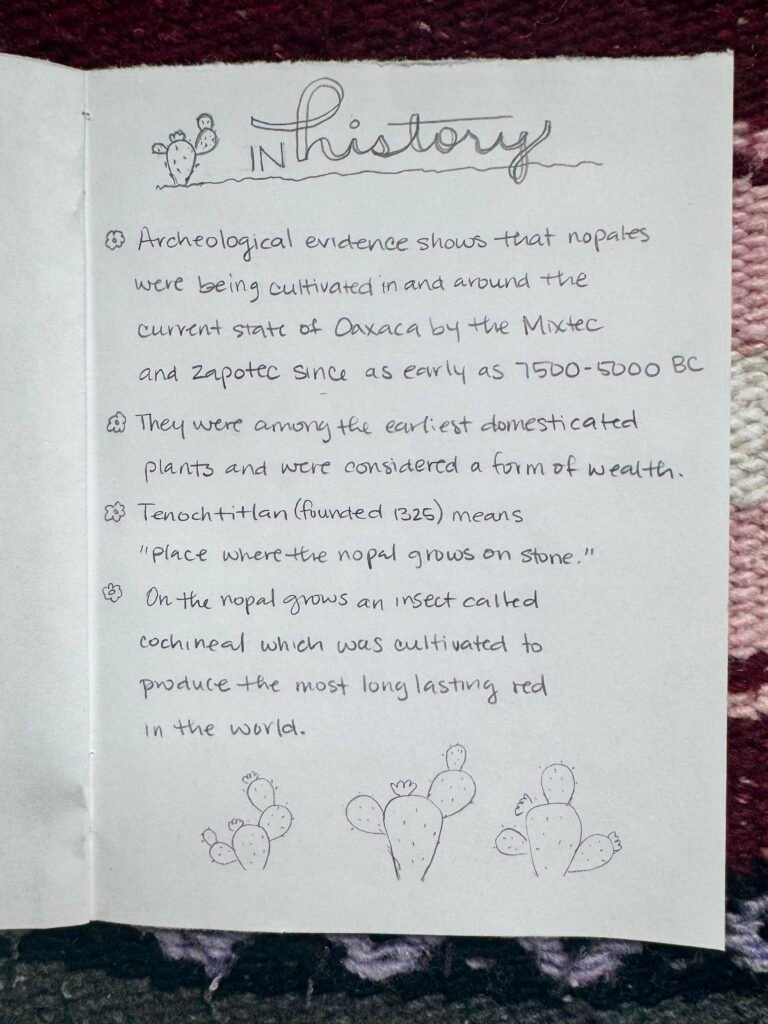 IN history
Archeological evidence shows that nopales
were being cultivated in and around the
current state of Oaxaca by the Mixtec
and Zapotec since as early as 7500-5000 BC
They were among the earliest domesticated
plants and were considered a form of wealth.
Tenochtitlan (founded 1325) means
"place where the nopal grows on stone."
On the nopal grows an insect called
cochineal which was cultivated to
produce the most long lasting red
in the world.